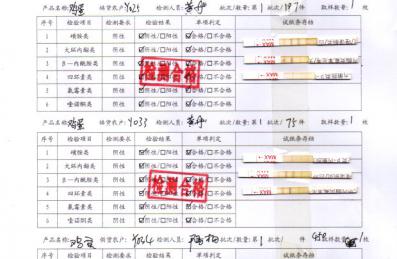 产品名称: 鸡蛋 供货客户: Y029 检测人员: 批次/数量: 第1 批次/197件 取样数量: 1 枚
序号 检验项目 检验要求 检验结果 单项判定 试纸条存档
1 磺胺类 阴性 ☑阴性/□阳性 ☑合格/□不合格
2 大环内酯类 阴性 ☑阴性/□阳性 ☑合格/□不合格
3 β-内酰胺类 阴性 ☑阴性/□阳性 ☑合格/□不合格
4 四环素类 阴性 ☑阴性/□阳性 ☑合格/□不合格
5 氟霉素类 阴性 ☑阴性/□阳性 ☑合格/□不合格
6 喹诺酮类 阴性 ☑阴性/□阳性 ☑合格/□不合格
检测合格
MAX
产品名称: 鸡蛋 供货客户: Y033 检测人员: 批次/数量: 第1 批次/75件 取样数量: 1 枚
序号 检验项目 检验要求 检验结果 单项判定 试纸条存档
1 磺胺类 阴性 ☑阴性/□阳性 ☑合格/□不合格
2 大环内酯类 阴性 ☑阴性/□阳性 ☑合格/□不合格
3 β-内酰胺类 阴性 ☑阴性/□阳性 ☑合格/□不合格
4 四环素类 阴性 ☑阴性/□阳性 ☑合格/□不合格
5 氟霉素类 阴性 ☑阴性/□阳性 ☑合格/□不合格
6 喹诺酮类 阴性 ☑阴性/□阳性 ☑合格/□不合格
检测合格
MAX
产品名称: 鸡蛋 供货客户: Y034 检测人员: 批次/数量: 第1 批次/ 件 取样数量: 1 枚